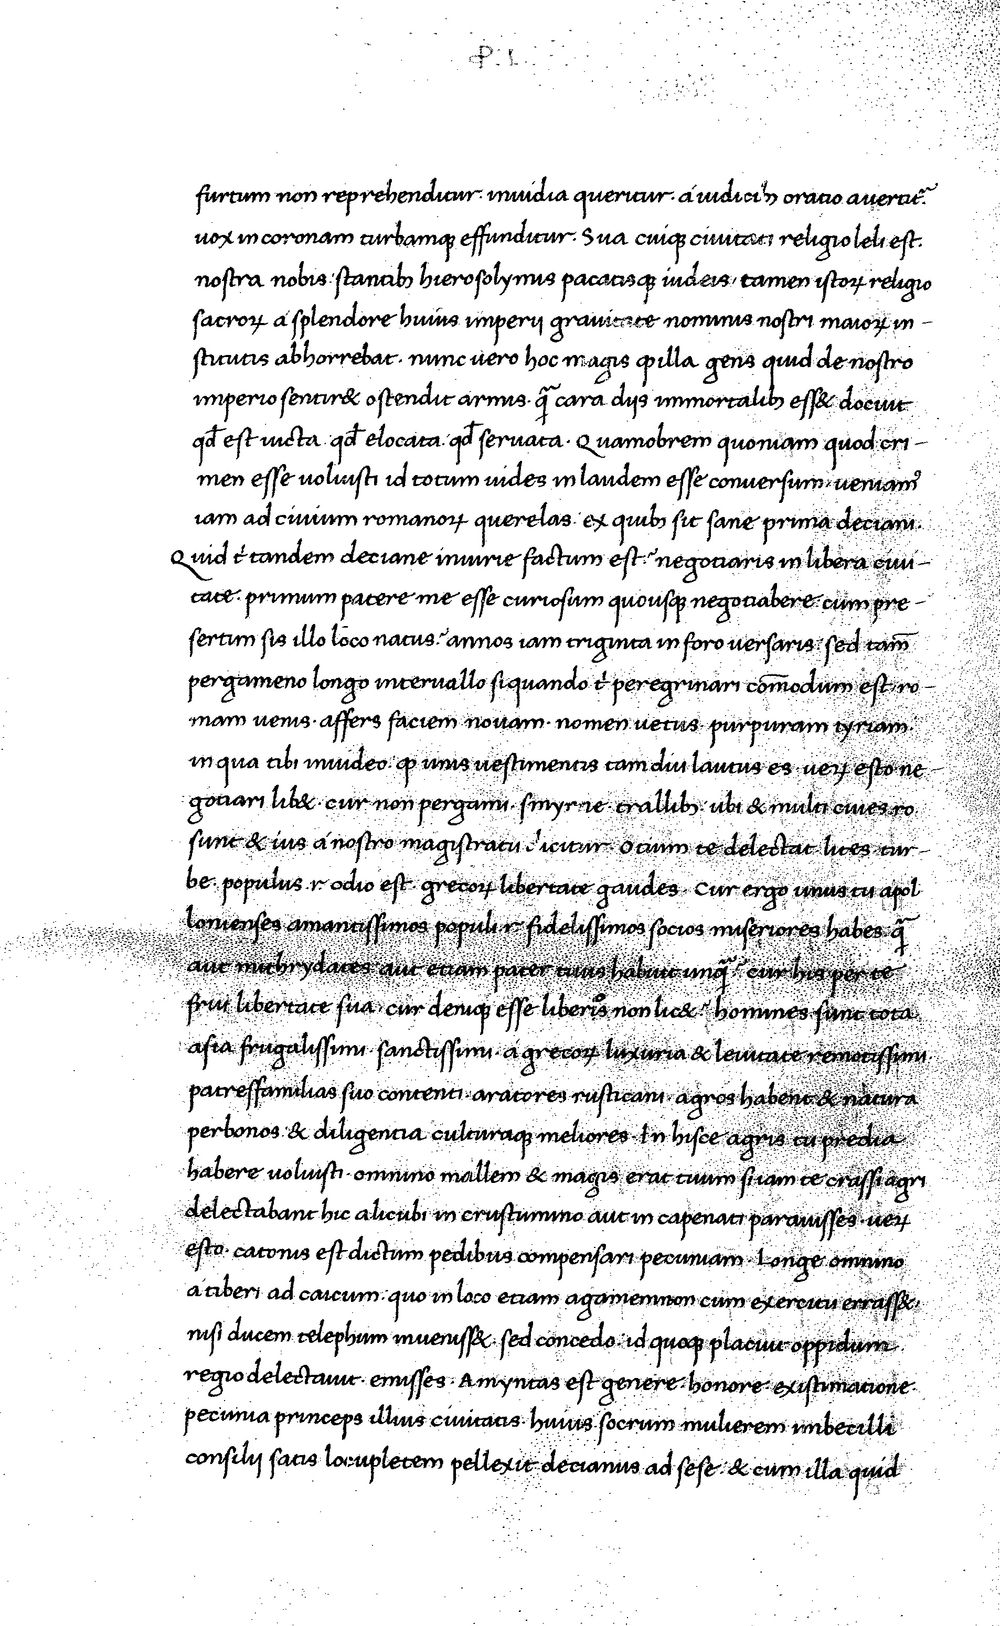 P. L.
furtum non reprehenditur. inuidia queritur. a iudicibꝫ oratio auertit᷑.
uox in coronam turbamqꝫ effunditur. Sua cuiqꝫ ciuitati religio leli est.
nostra nobis. stantibꝫ hierosolymis pacatisqꝫ iudeis, tamen istoꝝ religio
sacroꝝ a splendore huius imperii grauitate nominis nostri maioꝝ in-
stitutis abhorrebat. nunc uero hoc magis ꝙ illa gens quid de nostro
imperio sentir& ostendit armis. q̃ cara diis immortalibꝫ ess& docuit
qđ est uicta. qđ elocata. qđ seruata. Quamobrem quoniam quod cri-
men esse uoluisti id totum uides in laudem esse conuersum. ueniamꝰ
iam ad ciuium romanoꝝ querelas. ex quibꝫ sit sane prima deciani.
Quid t᷑ tandem deciane iniurie factum est? negotiaris in libera ciui-
tate. primum patere me esse curiosum quousqꝫ negotiabere. cum pre-
sertim sis illo loco natus? annos iam triginta in foro uersaris. sed tam̄
pergameno longo interuallo siquando t᷑ peregrinari com̄odum est. ro-
mam uenis. affers faciem nouam. nomen uetus. purpuram tyriam.
in qua tibi inuideo. ꝙ unis uestimentis tam diu lautus es. ueꝝ esto ne-
gotiari lib&. cur non pergami. smyrne. trallibꝫ. ubi & multi ciues ro.
sunt & ius a nostro magistratu dicitur. Otium te delectat lites tur-
be. populus .r. odio est. grecoꝝ libertate gaudes. Cur ergo unus tu apol
lonienses amantissimos populi .r. fidelissimos socios miseriores habes. q̃
aut mithrydates aut etiam pater tuus habuit unq̃? cur his per te
frui libertate sua. cur deniqꝫ esse liberis non lic&? homines sunt tota
asia frugalissimi. sanctissimi. a grecoꝝ luxuria & leuitate remotissimi
patresfamilias suo contenti. aratores rusticani. agros habent & natura
perbonos. & diligentia culturaqꝫ meliores. In hisce agris tu predia
habere uoluisti. omnino mallem & magis erat tuum si iam te crassi agri
delectabant hic alicubi in crustumino aut in capenati parauisses. ueꝝ
esto. catonis est dictum pedibus compensari pecuniam. Longe omnino
a tiberi ad caicum. quo in loco etiam agamemnon cum exercitu errass&,
nisi ducem telephum inueniss&. sed concedo. id quoqꝫ placuit oppidum.
regio delectauit. emisses. Amyntas est genere. honore. existimatione.
pecunia princeps illius ciuitatis. huius socrum mulierem imbecilli
consilii satis locupletem pellexit decianus ad sese. & cum illa quid